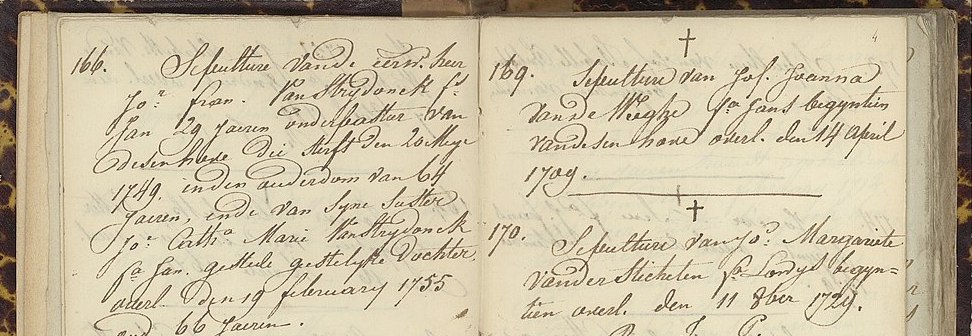 166. Sepulture vande eerw. heer
Jor. fran. Van Strydonck fs.
Jan 29 Jaeren onderpastor van
desen hove die sterft den 20 Meye
1749. inden ouderdom van 64
Jaeren, ende van syne suster
Jor. Catha. Marie Van Strydonck
fa. Jan. geestelyke Dochter
overl. den 19 february 1755
oud 66 Jaeren.
4
169. Sepulture van Jof. Joanna
van de Weghe fa. Jans begyntien
van desen hove overl. den 14 April
1709.
170. Sepulture van Jor. Margariete
vander Stichelen fa. Lowys begyn=
tien overl. den 11 8ber 1729.